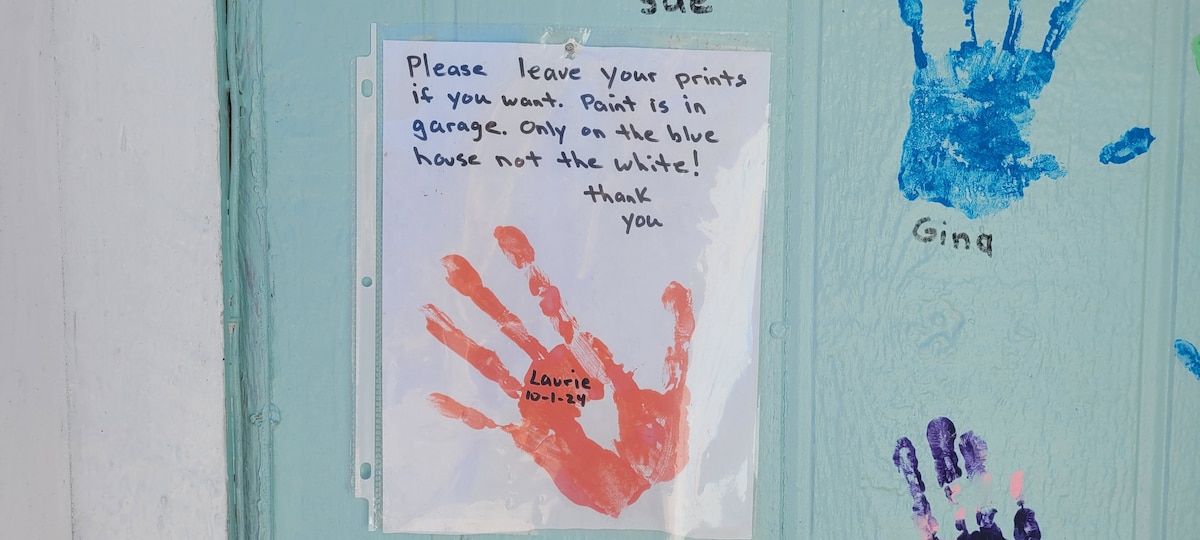 sue
Please leave your prints
if you want. Paint is in
garage. Only on the blue
house not the white!
thank
you
Laurie
10-1-24
Gina